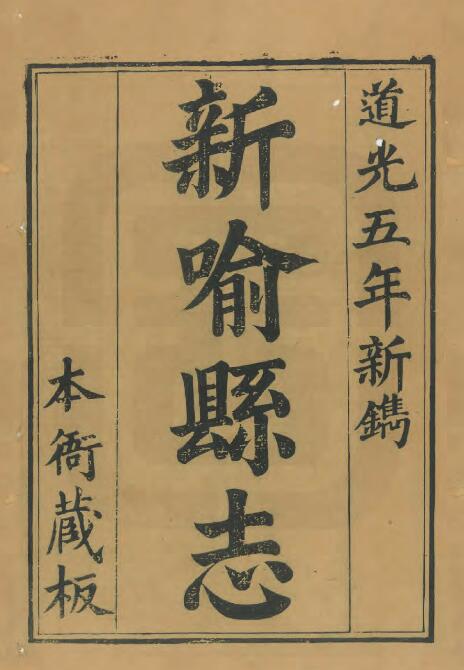 道光五年新鐫
新喻縣志
本衙蔵板